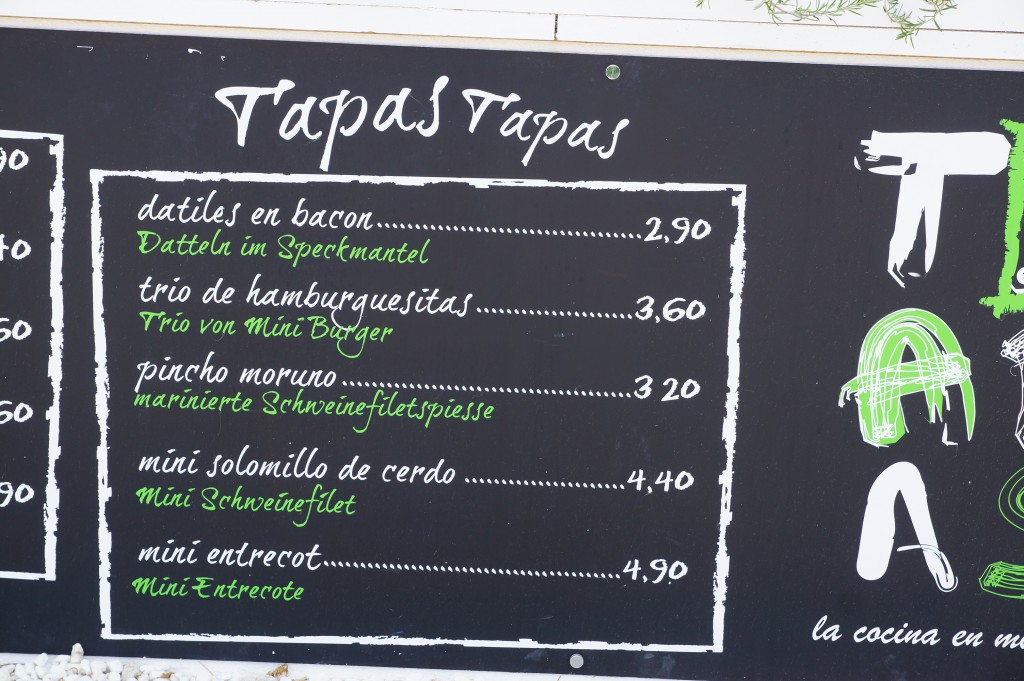 Tapas Tapas
datiles en bacon..............................2,90
Datteln im Speckmantel
trio de hamburguesitas..................3,60
Trio von Mini Burger
pincho moruno.................................3 20
marinierte Schweinefiletspiesse
mini solomillo de cerdo..................4,40
Mini Schweinefilet
mini entrecot..................................4,90
Mini Entrecote
la cocina en